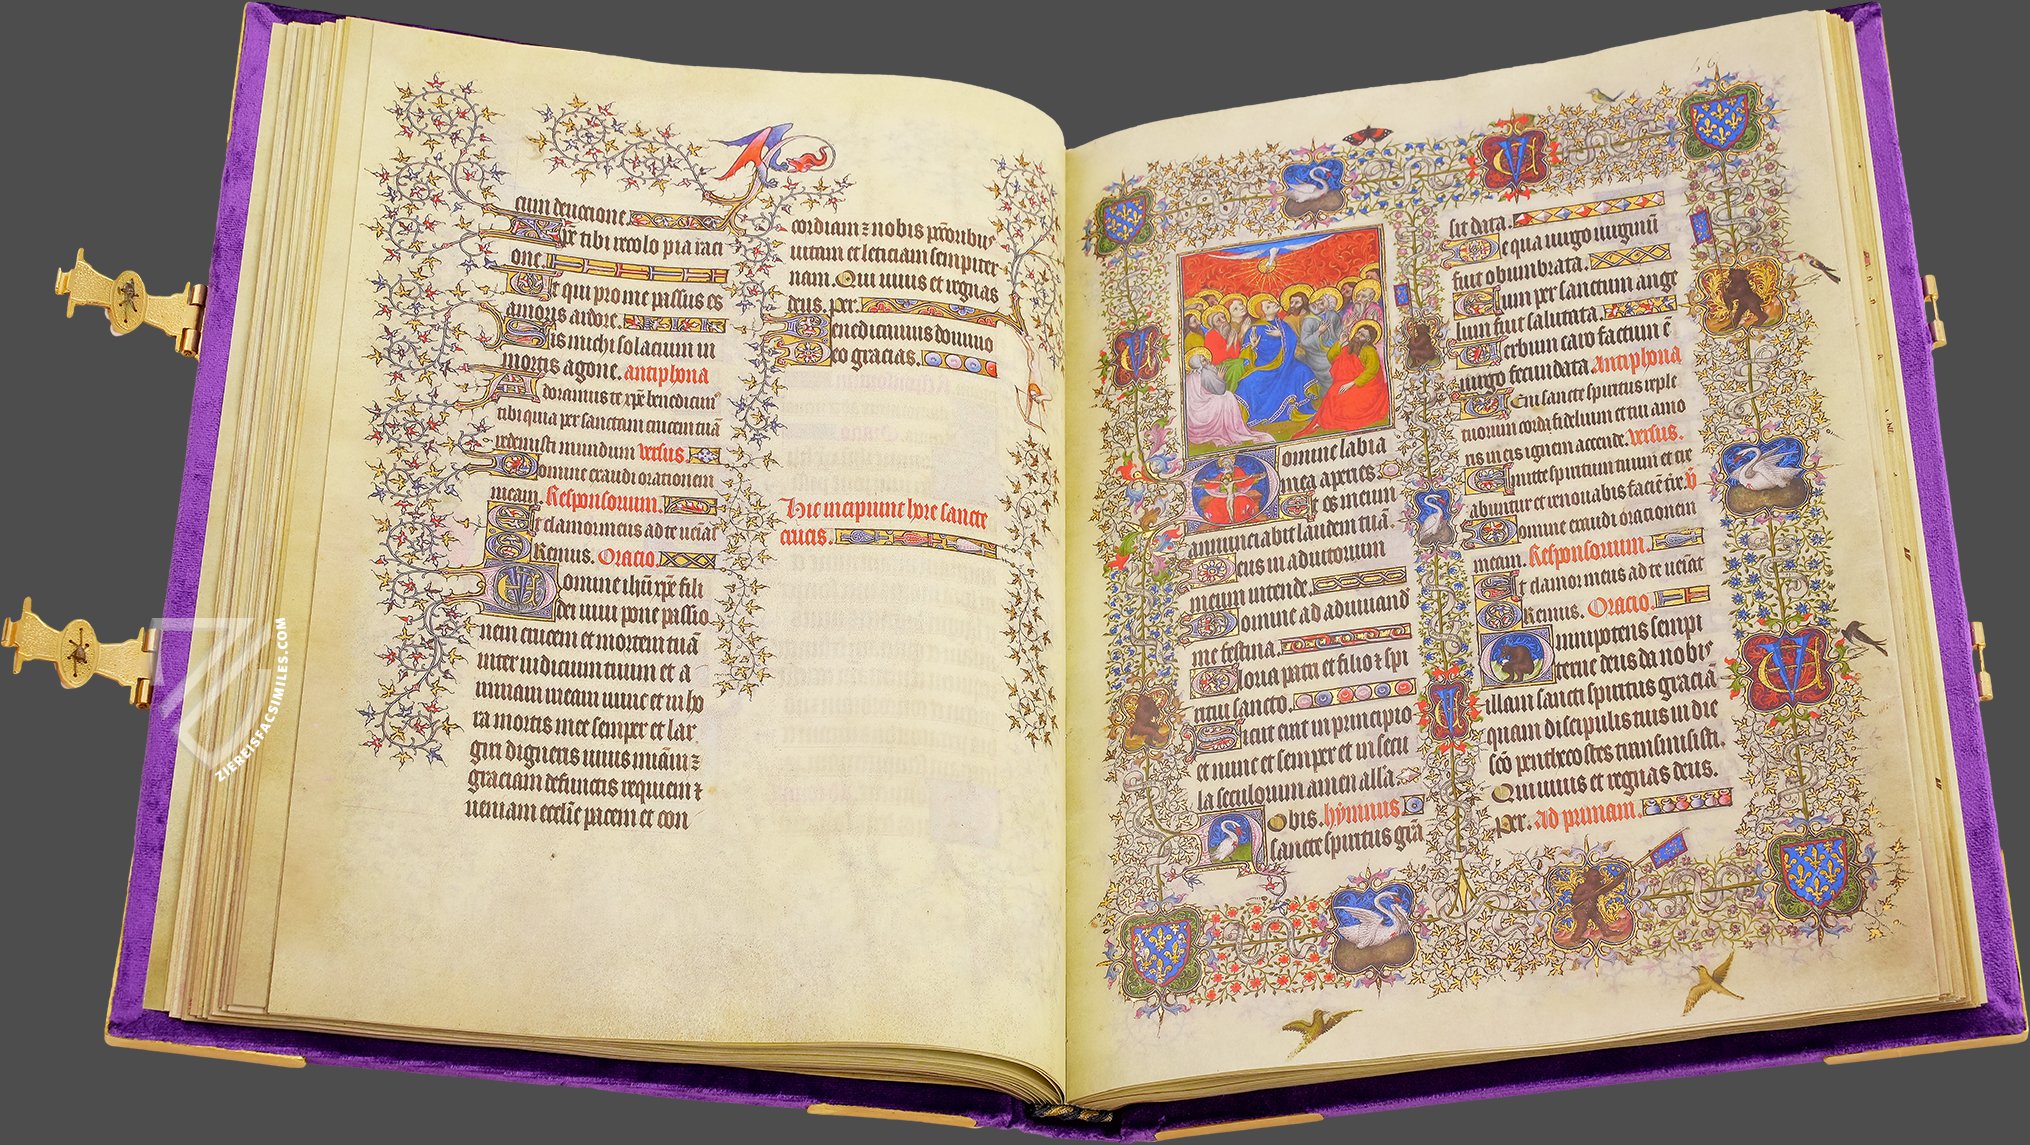 cum deuocione.
Xpe tibi recolo pia raci
one.
Et qui pro me passus es
amoris ardore.
Sis michi solacium in
mortis agone. antiphona
Adoramus te xpe benedicim9
tibi quia per sanctam crucem tuā
redemisti mundum versus.
Domine exaudi orationem
meam. Responsorium.
Et clamor meus ad te ueniat
Oremus. Oracio.
Domine ihū xpe fili
dei uiui pone passio
nem crucem et mortem tuā
inter iudicium tuum et a
nimam meam nunc et in ho
ra mortis mee semper et lar
giri digneris uiuis miām ⁊
graciam defunctis requiem ⁊
ueniam ecclīe pacem et con
cordiam ⁊ nobis pccoribus
uitam et leticiam sempiter
nam. Qui uiuis et regnas
deus. per.
Benedicamus domino
Deo gracias.
Hic incipiunt hore sancte
crucis.
46
Domine labia
mea aperies.
Et os meum
annunciabit laudem tuā.
Deus in adiutorium
meum intende.
Domine ad adiuuand
me festina.
Gloria patri et filio ⁊ spi
ritui sancto.
Sicut erat in principio
et nunc et semper et in secu
la seculorum amen all'a.
Nobis. hymnus
sancte spiritus grā
sit data.
De qua uirgo uirginū
fuit obumbrata.
Cum per sanctum ange
lum fuit salutata.
Verbum caro factum ē
uirgo fecundata. Antiphona
Veni sancte spiritus reple
tuorum corda fidelium et tui amo
ris in eis ignem accende. versus.
Emitte spiritum tuum et cre
abuntur et renouabis faciē tre. R
Domine exaudi oracionem
meam. Responsorium.
Et clamor meus ad te ueniāt
Oremus. Oracio.
Omnipotens sempi
terne deus da nobis
illam sancti spiritus graciā
quam discipulis tuis in die
scō penthecostes transmisisti.
Qui uiuis et regnas deus.
Per. ad primam.
ZIEREISFACSIMILES.COM